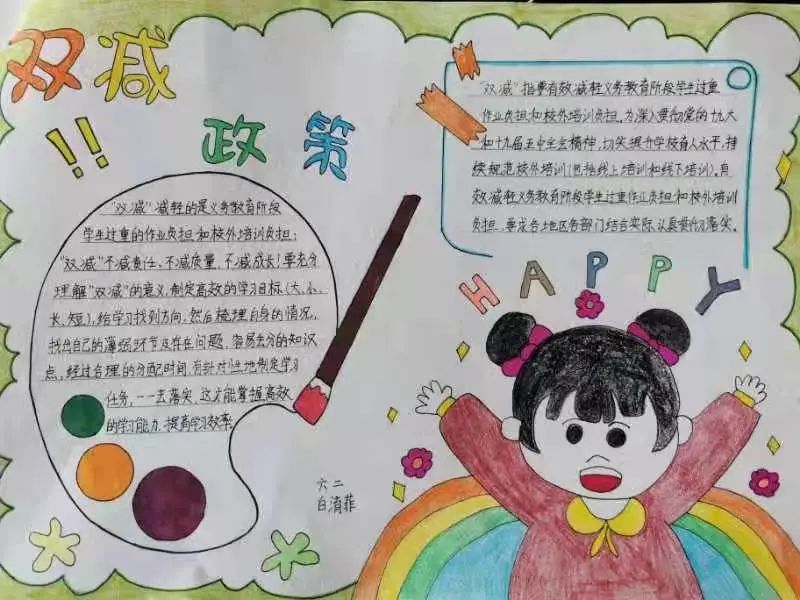 双减
!!
政策
"双减"减轻的是义务教育阶段
学生过重的作业负担和校外培训负担;
"双减"不减责任、不减质量、不减成长!要充分
理解"双减"的意义,制定高效的学习目标(大、小、
长、短),给学习找到方向,然后梳理自身的情况,
找出自己的薄弱环节及存在问题,容易丢分的知识
点,经过合理的分配时间,有针对性地制定学习
任务,一一去落实,这才能掌握高效
的学习能力,提高学习效率
"双减"指要有效减轻义务教育阶段学生过重
作业负担和校外培训负担。为深入贯彻党的十九大
和十九届五中全会精神,切实提升学校育人水平,持
续规范校外培训(包括线上培训和线下培训)。有
效减轻义务教育阶段学生过重作业负担和校外培训
负担,要求各地区各部门结合实际,认真贯彻落实。
HAPPY
六二
白清菲